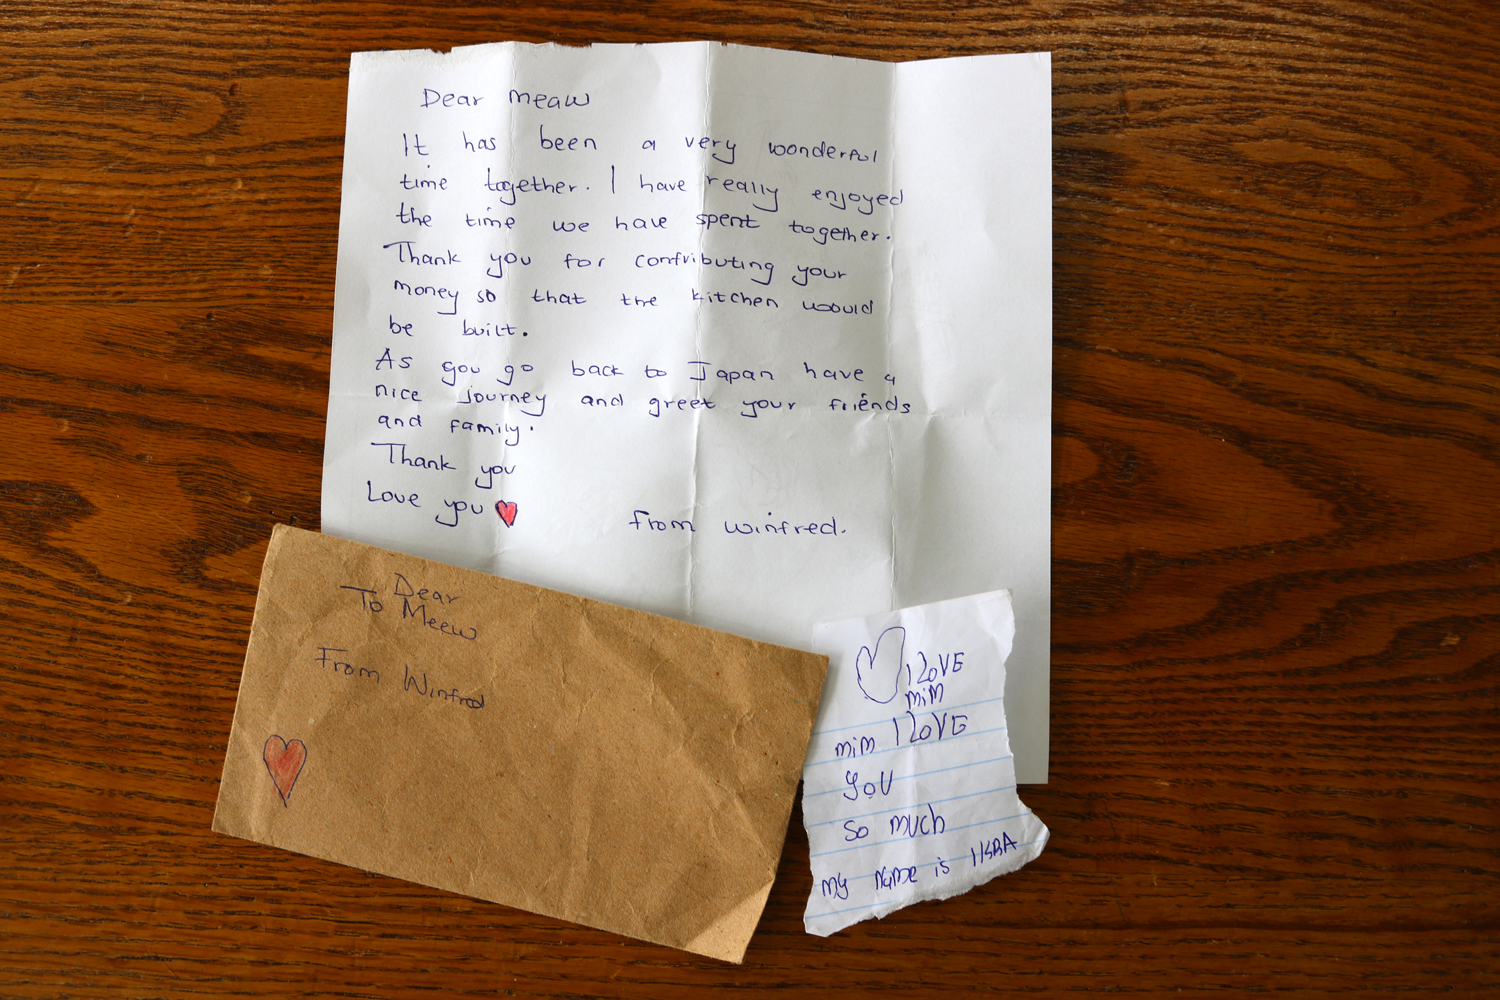 Dear meaw
It has been a very wonderful
time together. I have really enjoyed
the time we have spent together.
Thank you for contributing your
money so that the kitchen would
be built.
As you go back to Japan have a
nice journey and greet your friends
and family.
Thank you
Love you
From Winfred.
Dear
To Meew
From Winfred
I LOVE
MiM
MiM I LOVE
YOU
SO MUCH
MY NAME is